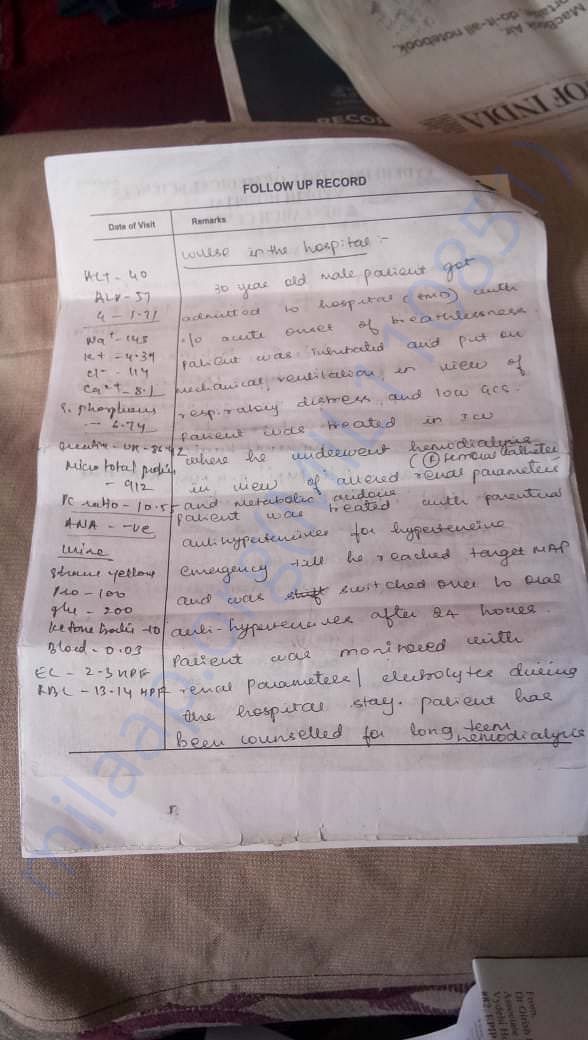 MacBook Air.
do-it-all notebook.
OF INDIA
RECO
FOLLOW UP RECORD
Date of Visit
Remarks
in the hospital :-
ALT - 40
30 year old male patient got
admitted to hospital (EMD) with
Na+ - 145
acute onset of breathlessness
K+ - 4.34
patient was intubated and put on
Cl- - 114
Ca2+ - 8.1
mechanical ventilation in view of
S. phosphorus
respiratory distress and low GCS.
- 6.74
Patient was treated in ICU
where he underwent hemodialysis
femoral catheter
Micro total protein
- 912
in view of altered renal parameters
PC ratio - 10.55
and metabolic
ANA - -ve
patient was treated with parenteral
Urine
antihypertensives for hypertensive
yellow
emergency till he reached target MAP
Pro - 100
and was switched over to oral
glu - 200
Ketone bodies - 10
anti-hypertensives after 24 hours.
Blood - 0.03
Patient was monitored with
EC - 2-3 HPF
RBC - 13-14 HPF
renal parameters / electrolytes during
the hospital stay. patient has
been counselled for long term
hemodialysis
milaap.org(MIL110851)
From,
Dr Girish
Associate
Vydehi H
#82 EPIP